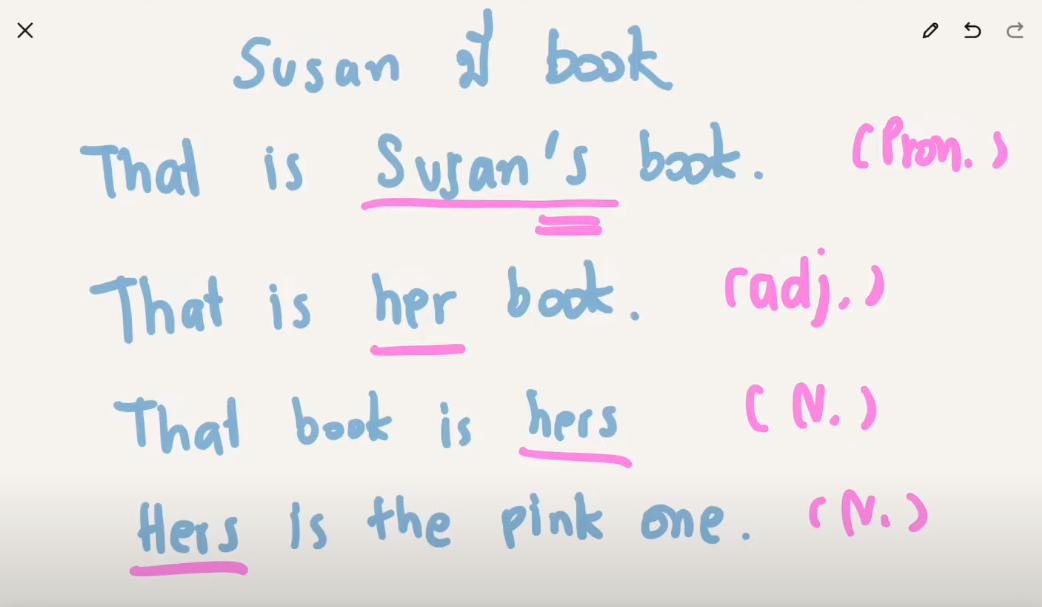 Susan มี book
That is Susan's book. (Pron.)
That is her book. (adj.)
That book is hers (N.)
Hers is the pink one. (N.)